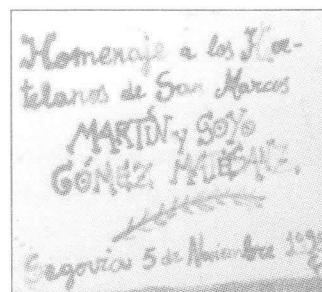 Homenaje a los Hor-
telanos de San Marcos
MARTÍN y GOYO
GÓMEZ
Segovia 5 de Noviembre